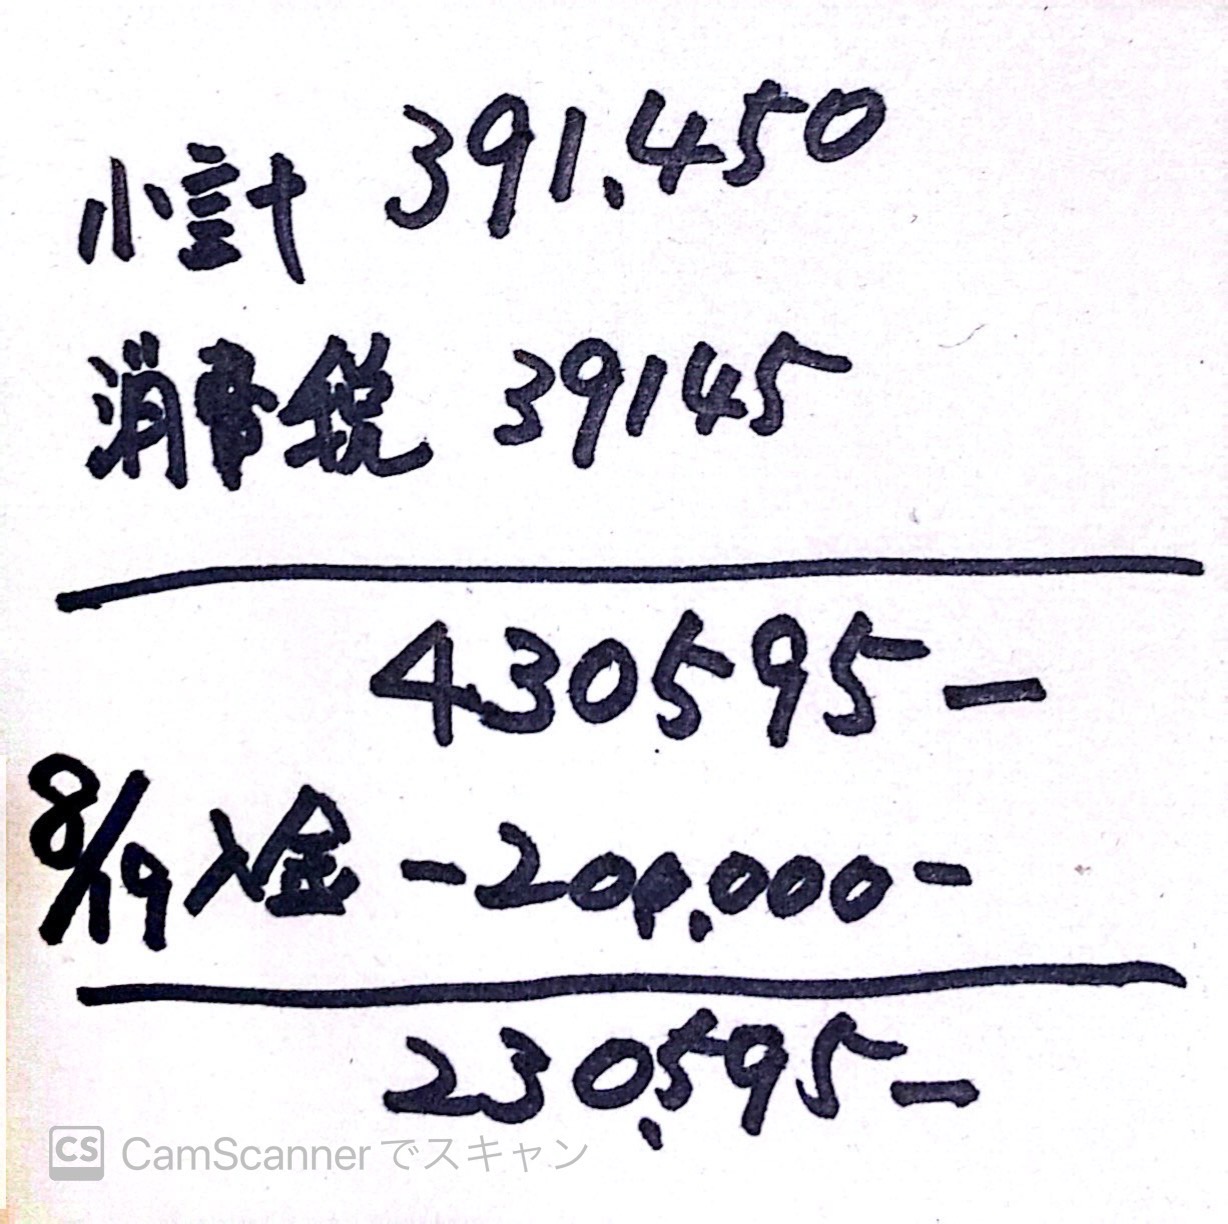 小計 391.450
消費税 39145
430595-
8/19 入金 -200,000-
230,595-
CS CamScanner でスキャン